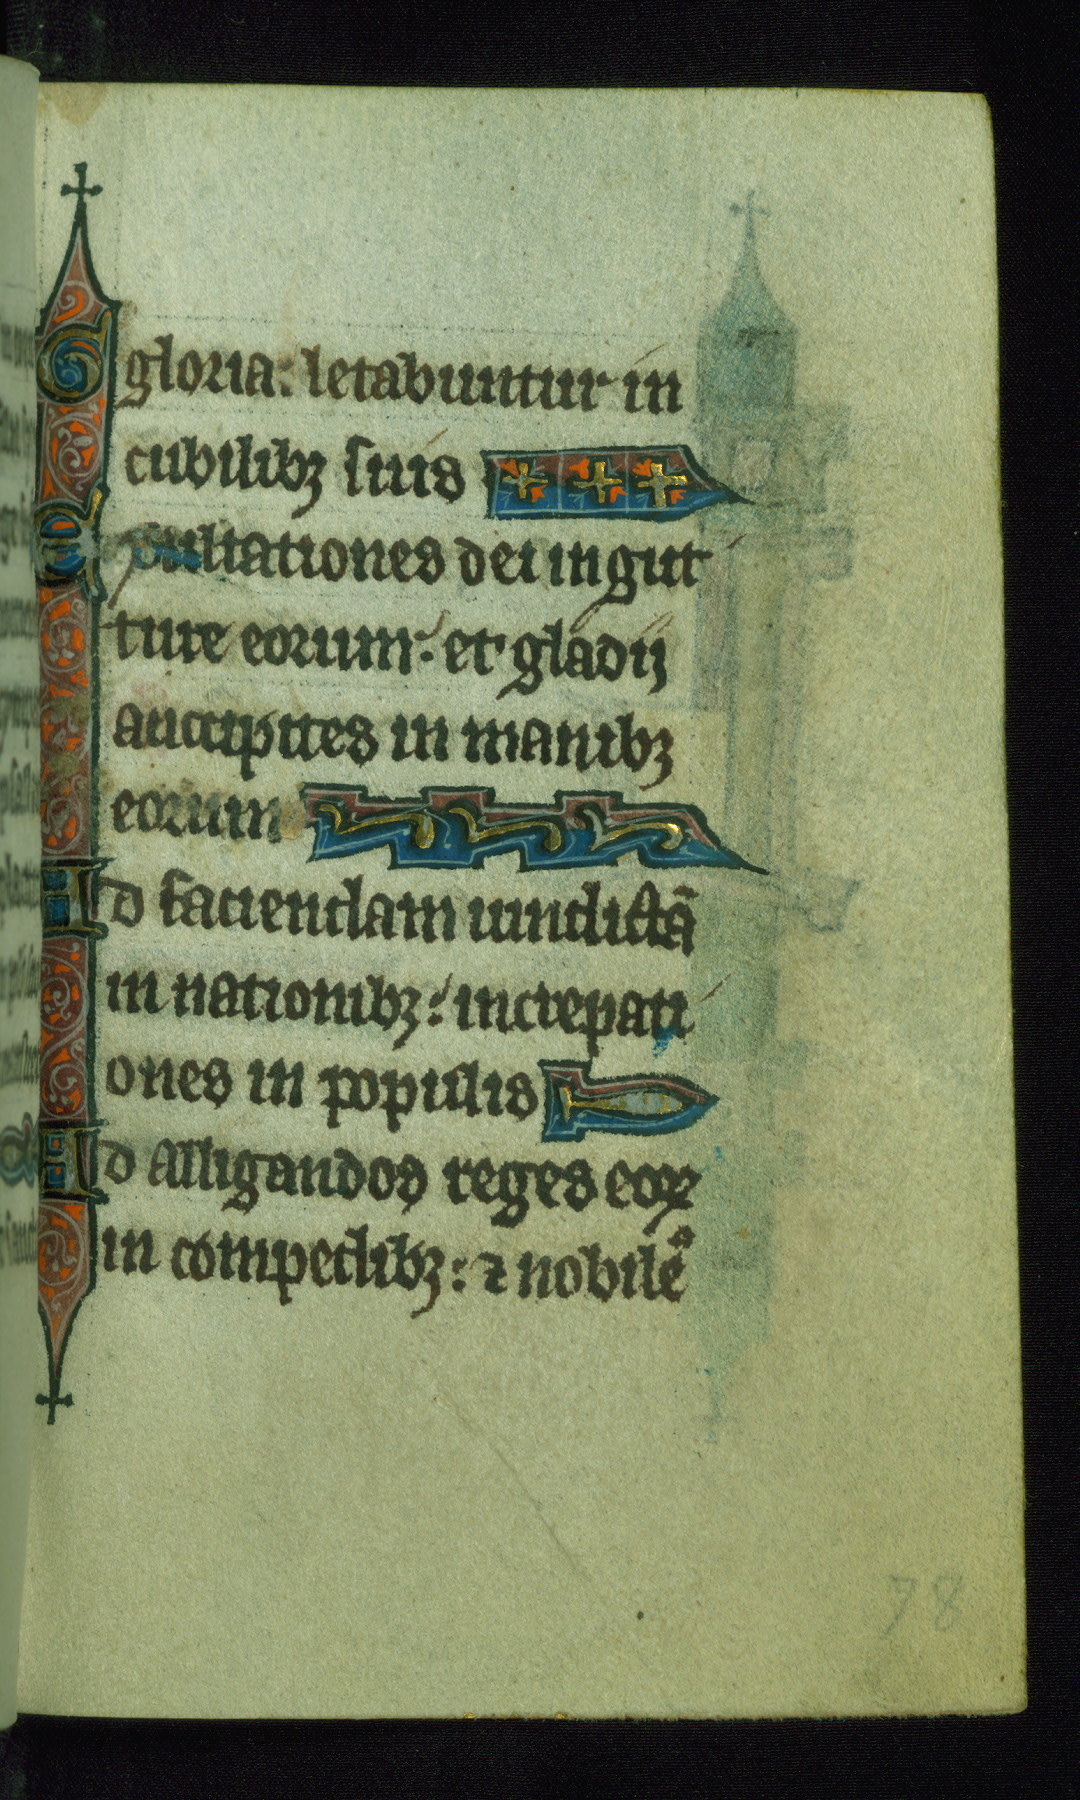 gloria: letabuntur in
cubilibꝫ suis
Exultationes dei in gut
ture eorum: et gladij
ancipites in manibꝫ
eorum
Ad faciendam uindictā
in nationibꝫ: increpati
ones in populis
Ad alligandos reges eoꝝ
in compedibꝫ: ⁊ nobileˢ
78